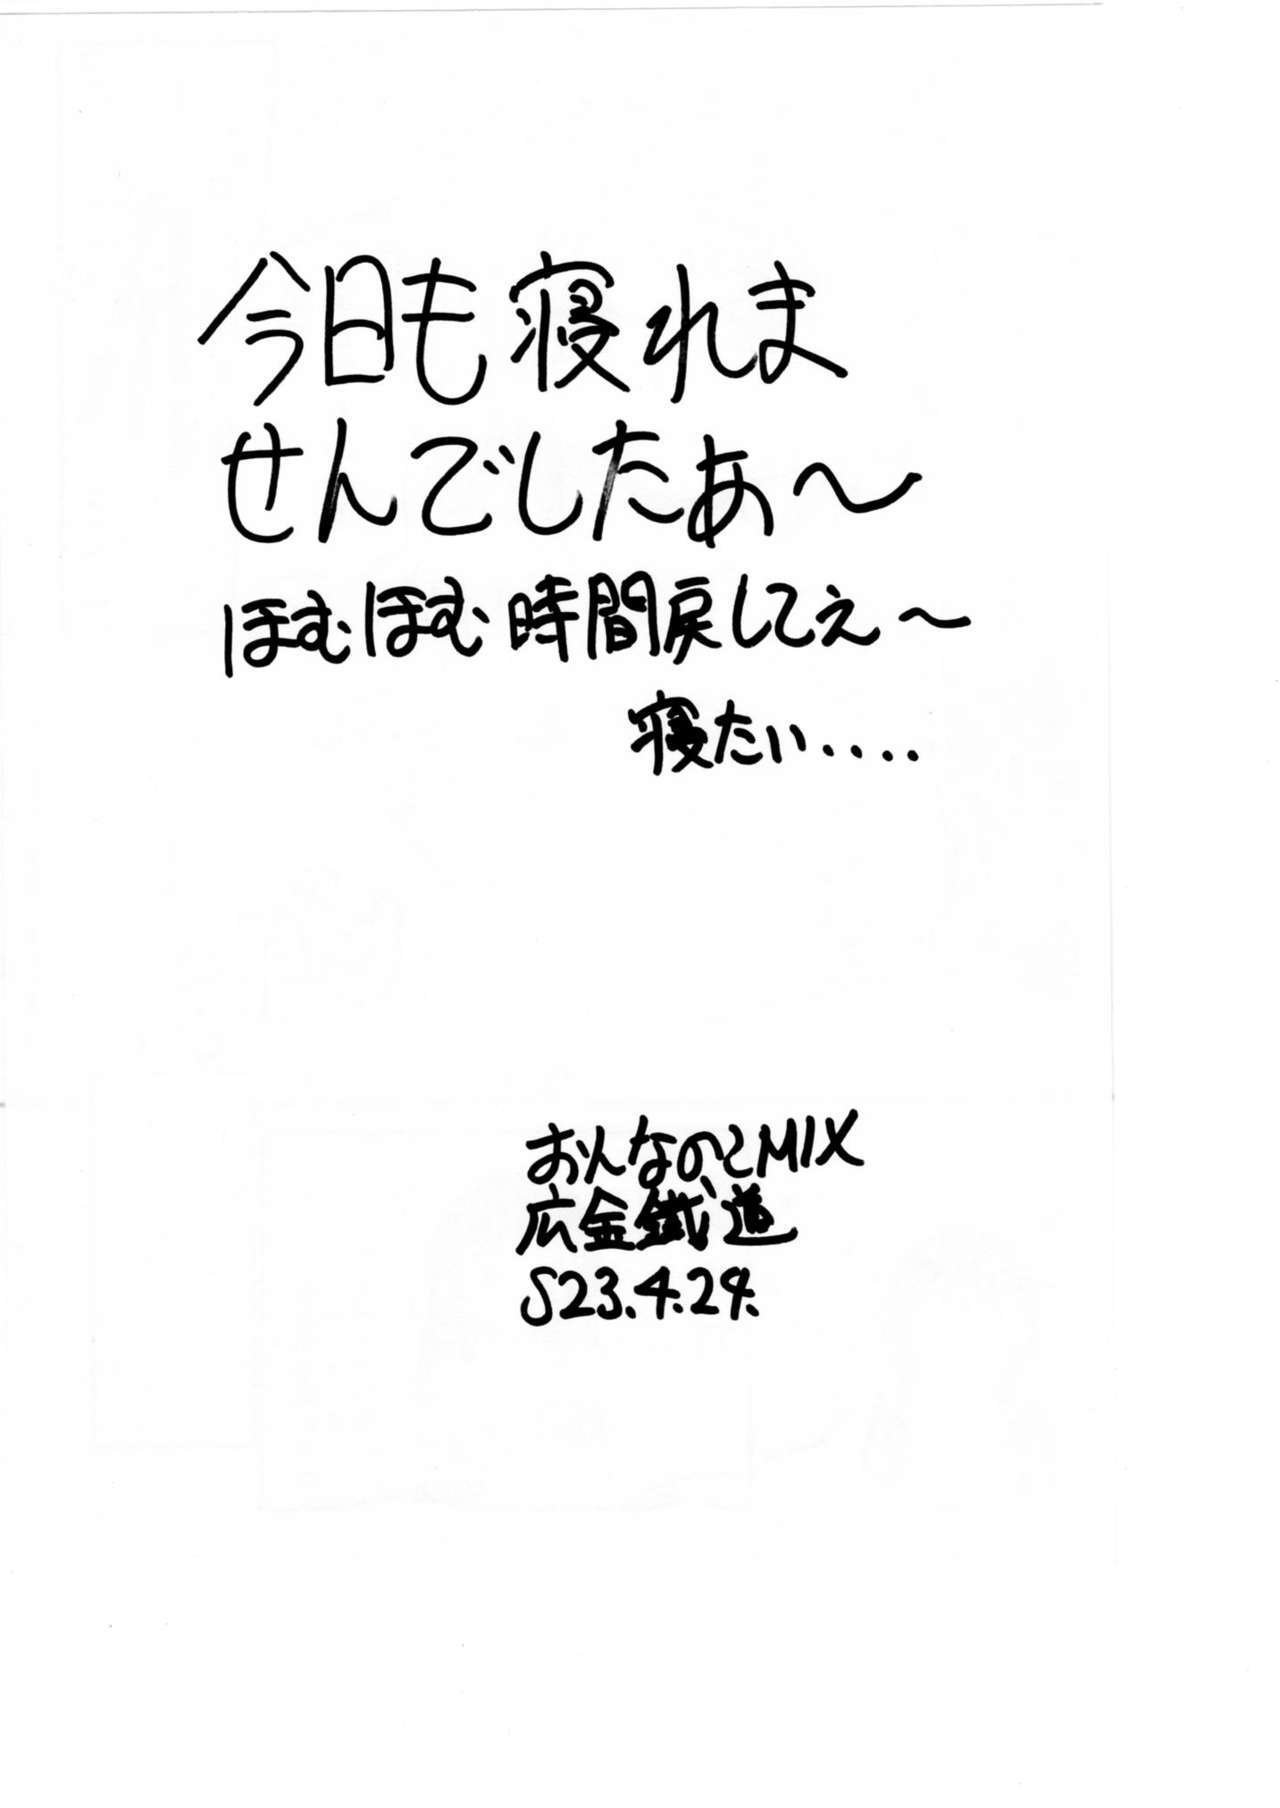 今日も寝れま
せんでしたぁ〜
ほむほむ時間戻してぇ〜
寝たい‥‥
おんなのこMIX
広金鐵道
S23.4.24.